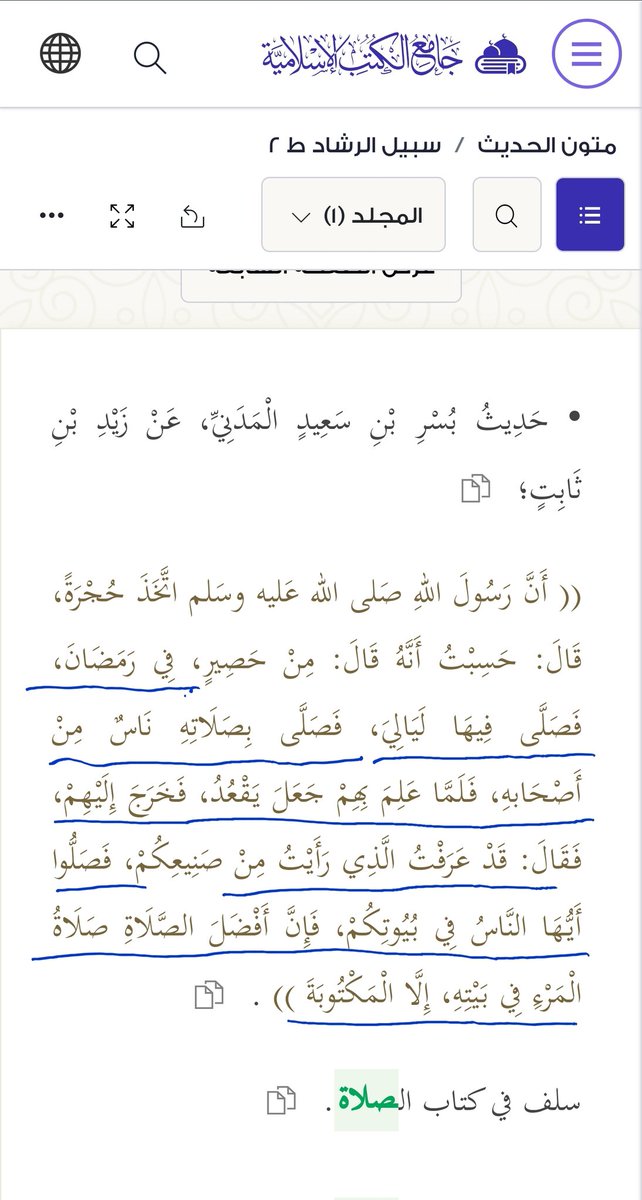 جَامِعُ الكُتُبِ الإِسْلَامِيَّة
متون الحديث / سبيل الرشاد ط ٢
المجلد (١)
عرض الصفحة السابقة
• حَدِيثُ بُسْرِ بْنِ سَعِيدٍ الْمَدَنِيِّ، عَنْ زَيْدِ بْنِ
ثَابِتٍ؛
(( أَنَّ رَسُولَ اللهِ صَلى الله عَليه وسَلم اتَّخَذَ حُجْرَةً،
قَالَ: حَسِبْتُ أَنَّهُ قَالَ: مِنْ حَصِيرٍ، فِي رَمَضَانَ،
فَصَلَّى فِيهَا لَيَالِيَ، فَصَلَّى بِصَلَاتِهِ نَاسٌ مِنْ
أَصْحَابِهِ، فَلَمَّا عَلِمَ بِهِمْ جَعَلَ يَقْعُدُ، فَخَرَجَ إِلَيْهِمْ،
فَقَالَ: قَدْ عَرَفْتُ الَّذِي رَأَيْتُ مِنْ صَنِيعِكُمْ، فَصَلُّوا
أَيُّهَا النَّاسُ فِي بُيُوتِكُمْ، فَإِنَّ أَفْضَلَ الصَّلَاةِ صَلَاةُ
الْمَرْءِ فِي بَيْتِهِ، إِلَّا الْمَكْتُوبَةَ )) .
سلف في كتاب الصلاة .